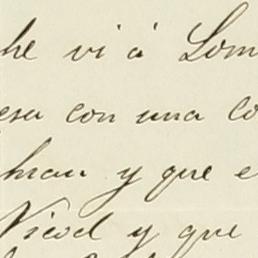 he vi á Lom
esa con una co
hian y que e
Nicol y que